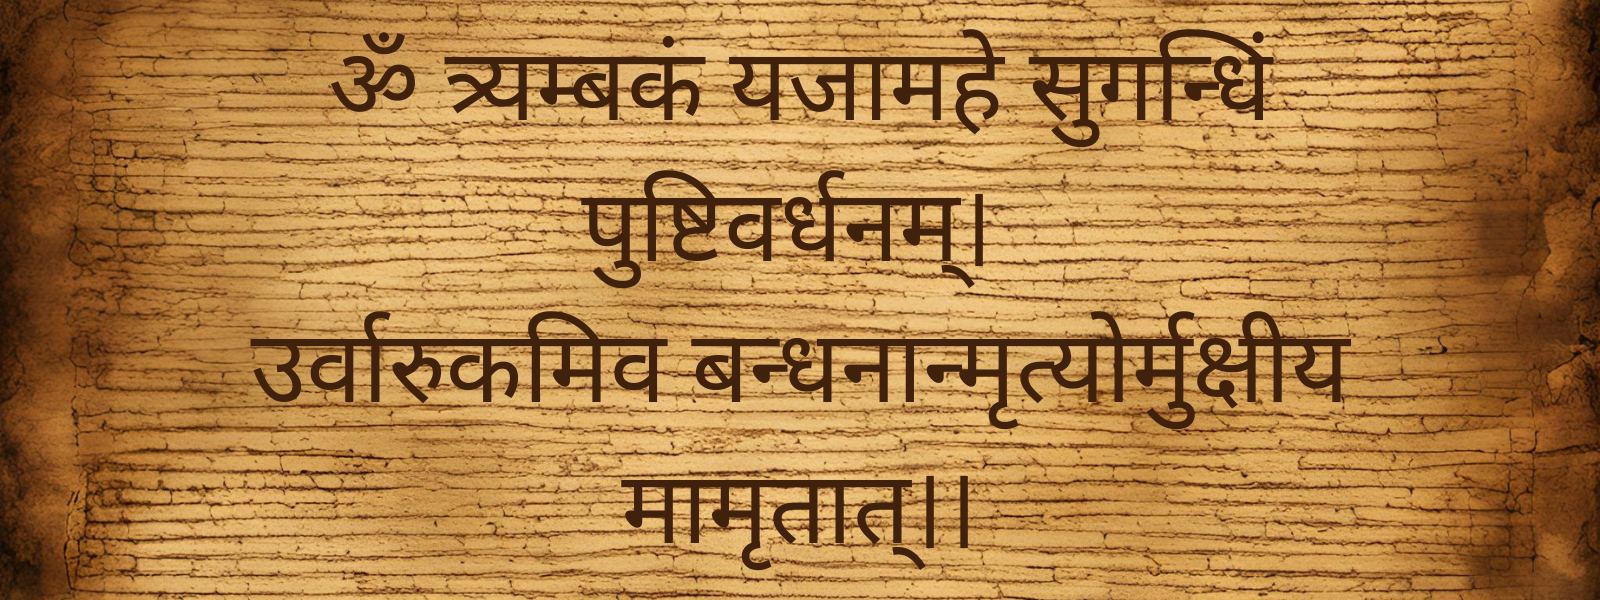 ॐ त्र्यम्बकं यजामहे सुगन्धिं
पुष्टिवर्धनम्|
उर्वारुकमिव बन्धनान्मृत्योर्मुक्षीय
मामृतात्||